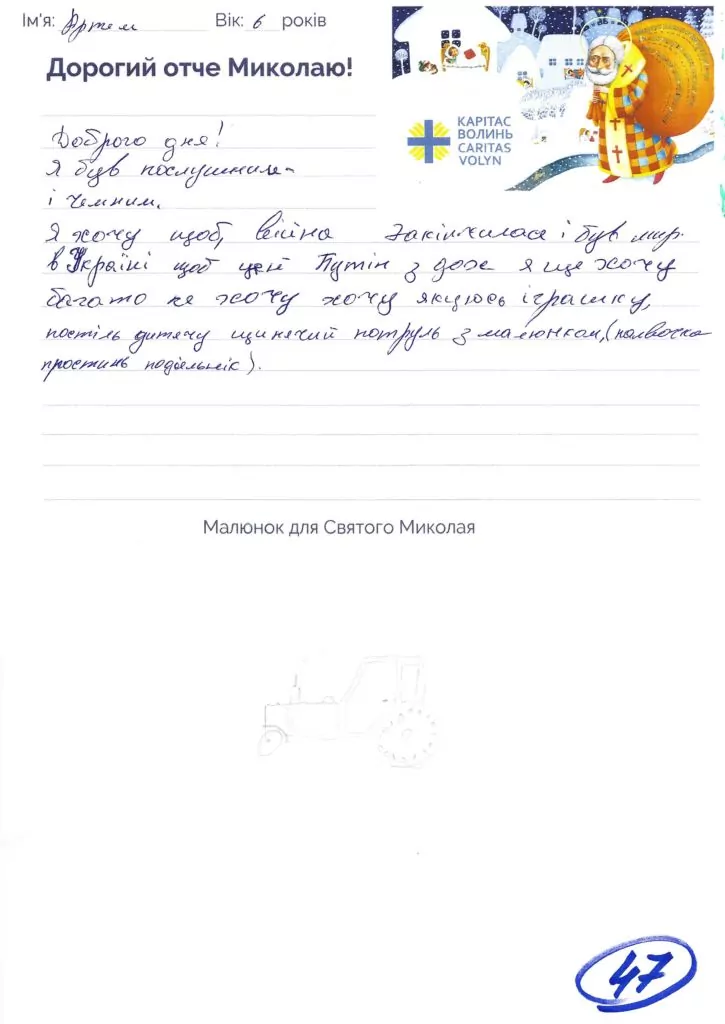 Ім'я: Артем Вік: 6 років
Дорогий отче Миколаю!
КАРІТАС
ВОЛИНЬ
CARITAS
VOLYN
Доброго дня!
Я був послушним
і чемним.
Я хочу щоб, війна закінчилася і був мир
в Україні щоб цей Путін здох я ще хочу
багато не хочу хочу якуюсь іграшку,
постіль дитячу щинячий потруль з малюнком, (наволочка
простинь подіяльнік).
Малюнок для Святого Миколая
47